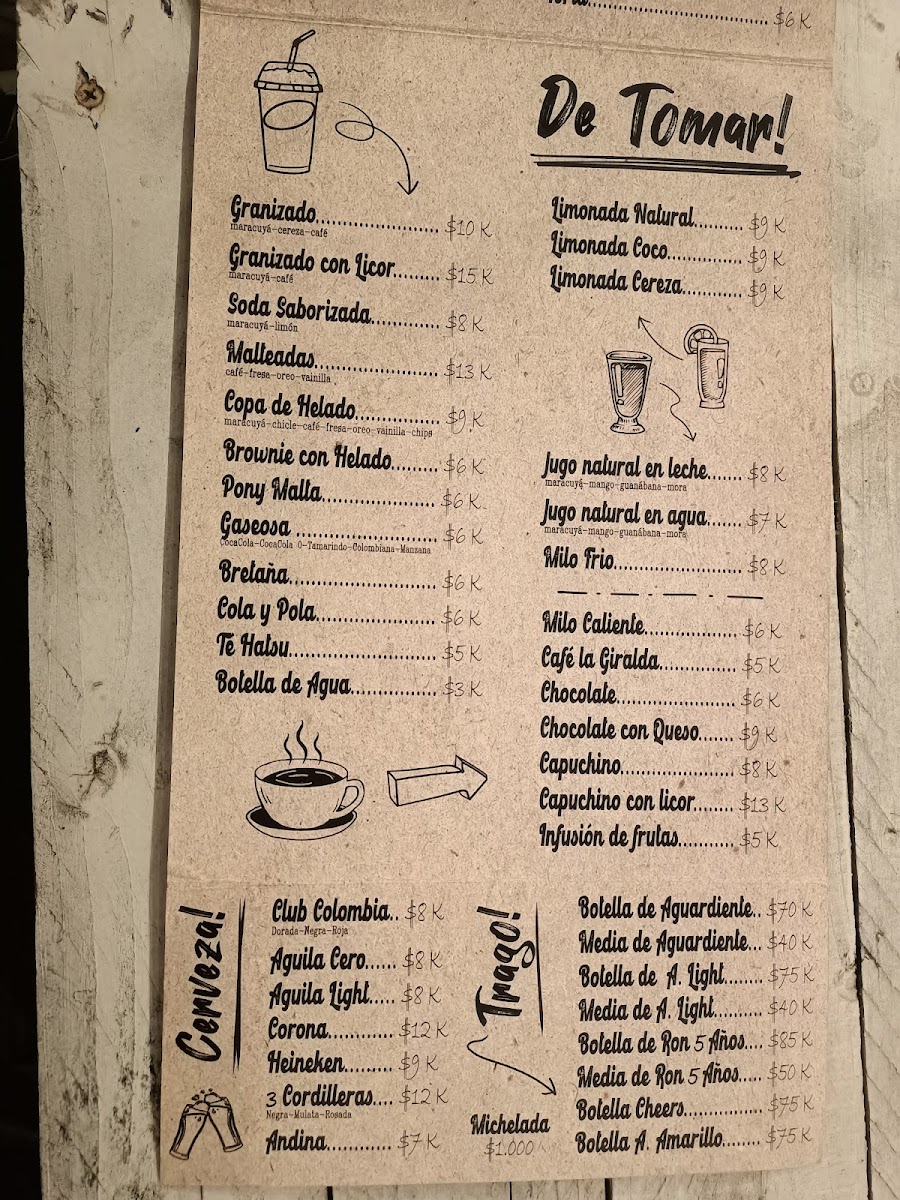 $6 K
De Tomar!
Granizado........................ $10 K
maracuyá-cereza-café
Granizado con Licor......... $15 K
maracuyá-café
Soda Saborizada............. $8 K
maracuyá-limón
Malteadas........................ $13 K
café-fresa-oreo-vainilla
Copa de Helado................ $9 K
maracuyá-chicle-café-fresa-oreo-vainilla-chips
Brownie con Helado......... $6 K
Pony Malta...................... $6 K
Gaseosa ........................... $6 K
CocaCola-CocaCola 0-Tamarindo-Colombiana-Manzana
Bretaña............................ $6 K
Cola y Pola....................... $6 K
Té Hatsu............................ $5 K
Botella de Agua................ $3 K
Limonada Natural.......... $9 K
Limonada Coco............... $9 K
Limonada Cereza............ $9 K
Jugo natural en leche....... $8 K
maracuyá-mango-guanábana-mora
Jugo natural en agua....... $7 K
maracuyá-mango-guanábana-mora
Milo Frio......................... $8 K
Milo Caliente.................. $6 K
Café la Giralda............... $5 K
Chocolate........................ $6 K
Chocolate con Queso....... $9 K
Capuchino...................... $8 K
Capuchino con licor........ $13 K
Infusión de frutas........... $5 K
Cerveza!
Club Colombia.. $8 K
Dorada-Negra-Roja
Aguila Cero...... $8 K
Aguila Light..... $8 K
Corona............. $12 K
Heineken.......... $9 K
3 Cordilleras.... $12 K
Negra-Mulata-Rosada
Andina............. $7 K
Trago!
Michelada
$1.000
Botella de Aguardiente.. $70 K
Media de Aguardiente... $40 K
Botella de A. Light........ $75 K
Media de A. Light.......... $40 K
Botella de Ron 5 Años.... $85 K
Media de Ron 5 Años..... $50 K
Botella Cheers................ $75 K
Botella A. Amarillo........ $75 K